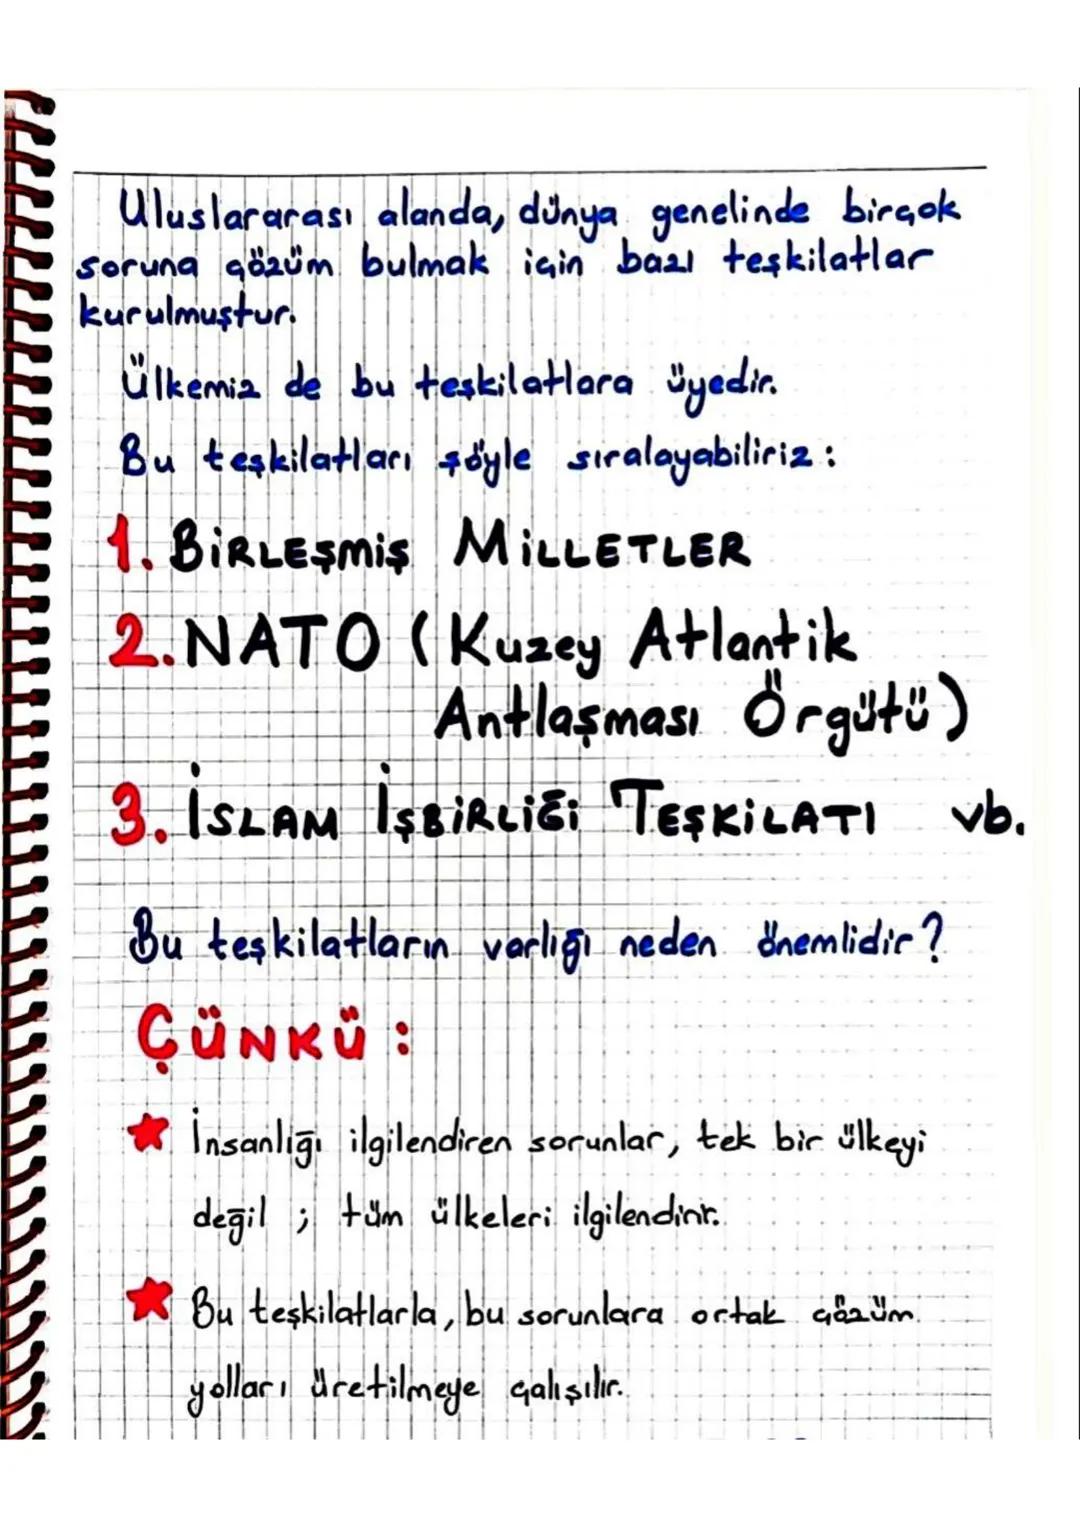 Uluslararası alanda, dünya genelinde birçok
soruna çözüm bulmak için bazı teşkilatlar
kurulmuştur.
Ülkemiz de bu teşkilatlara üyedir.
Bu teşkilatları şöyle sıralayabiliriz:
1. BİRLEŞMİŞ MİLLETLER
2. NATO (Kuzey Atlantik
Antlaşması Örgütü)
3. İSLAM İŞBİRLİĞİ TEŞKİLATI vb.
Bu teşkilatların varlığı neden önemlidir?
ÇÜNKÜ:
İnsanlığı ilgilendiren sorunlar, tek bir ülkeyi
değil; tüm ülkeleri ilgilendirir.
Bu teşkilatlarla, bu sorunlara ortak çözüm
yolları üretilmeye çalışılır.